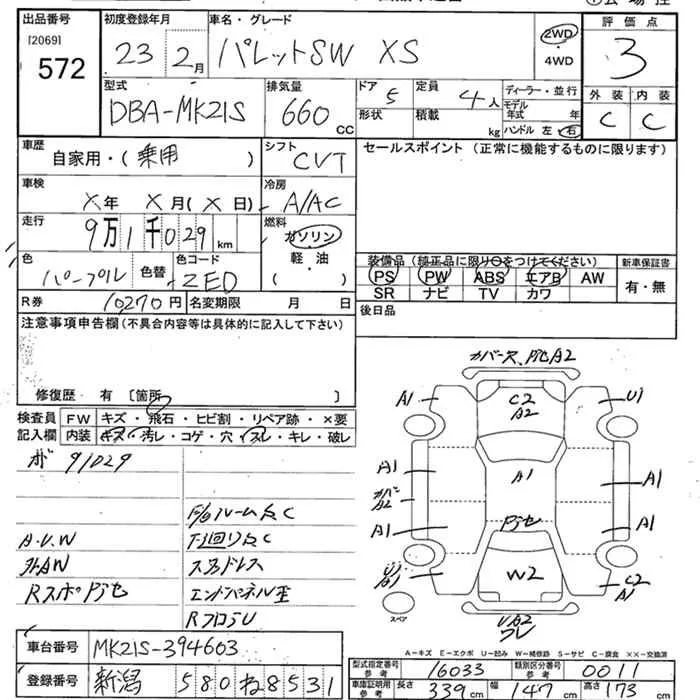 出品番号 初度登録年月 車名・グレード 評価点
[2069] 572 23年2月 パレットSW XS 2WD ・ 4WD 3
型式 排気量 ドア 5 定員 4人 ディーラー・並行 外装 内装
DBA-MK21S 660cc 形状 積載 kg モデル年式 年 C C
ハンドル 左 右
車歴 自家用・(乗用) シフト CVT セールスポイント (正常に機能するものに限ります)
車検 X年 X月(X日) 冷房 A/AC
走行 9万1千029km 燃料 ガソリン
軽・油
( )
色 パープル 色替 色コード ZE0
装備品 (純正品に限り○をつけてください) 新車保証書
PS PW ABS エアB AW 有・無
SR ナビ TV カワ
R券 10270円 名変期限 月 日 後日品
注意事項申告欄(不具合内容等は具体的に記入して下さい)
修復歴 有 [箇所 ]
検査員 FW キズ・飛石・ヒビ割・リペア跡・×要
記入欄 内装 キズ・汚レ・コゲ・穴・スレ・キレ・破レ
91029
A・U・W
外AW
下廻り
スタッドレス
エンドパネル
カバー
C2
A2
A1
U1
A1
A1
A1
カバー
A2
A1
A1
W2
C2
A1
スペア
A-キズ E-エクボ U-凹み W-補修跡 S-サビ C-腐食 ××-交換済
車台番号 MK21S-394603
登録番号 新潟 580 ね 8531
型式指定番号 参考 16033 類別区分番号 参考 0011
車庫証明用 参考 長さ 339cm 幅 147cm 高さ 173cm